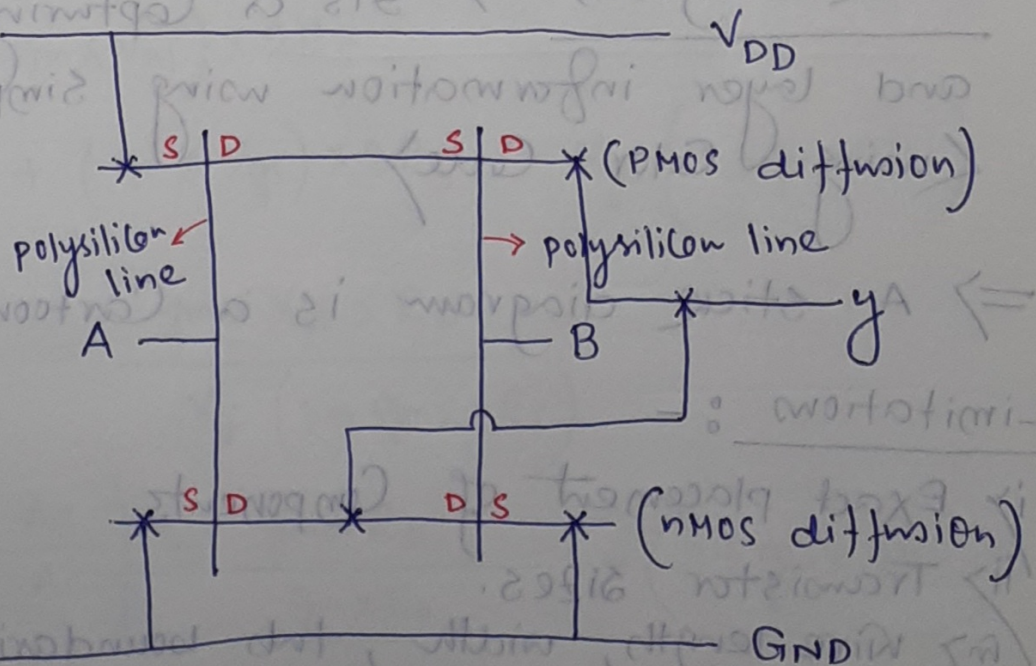 V_DD
S D S D (PMOS diffusion)
polysilicon line
polysilicon line
A B y
S D D S (nMOS diffusion)
GND